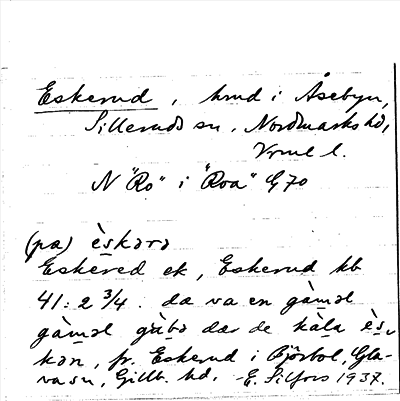 Eskerud, hmd i Åsebyn,
Silleruds sn, Nordmarks hd,
Vrml l.
N "Ro" i "Roa" G 70
(pa) èskərə
Eskered ek, Eskerud kb
41: 2 3/4. da va en gàməl
gàməl gùbə där de kàla ès-
kən, fr. Eskerud i Björbol, Gla-
va sn, Gillb. hd. -E. Silfors 1937.